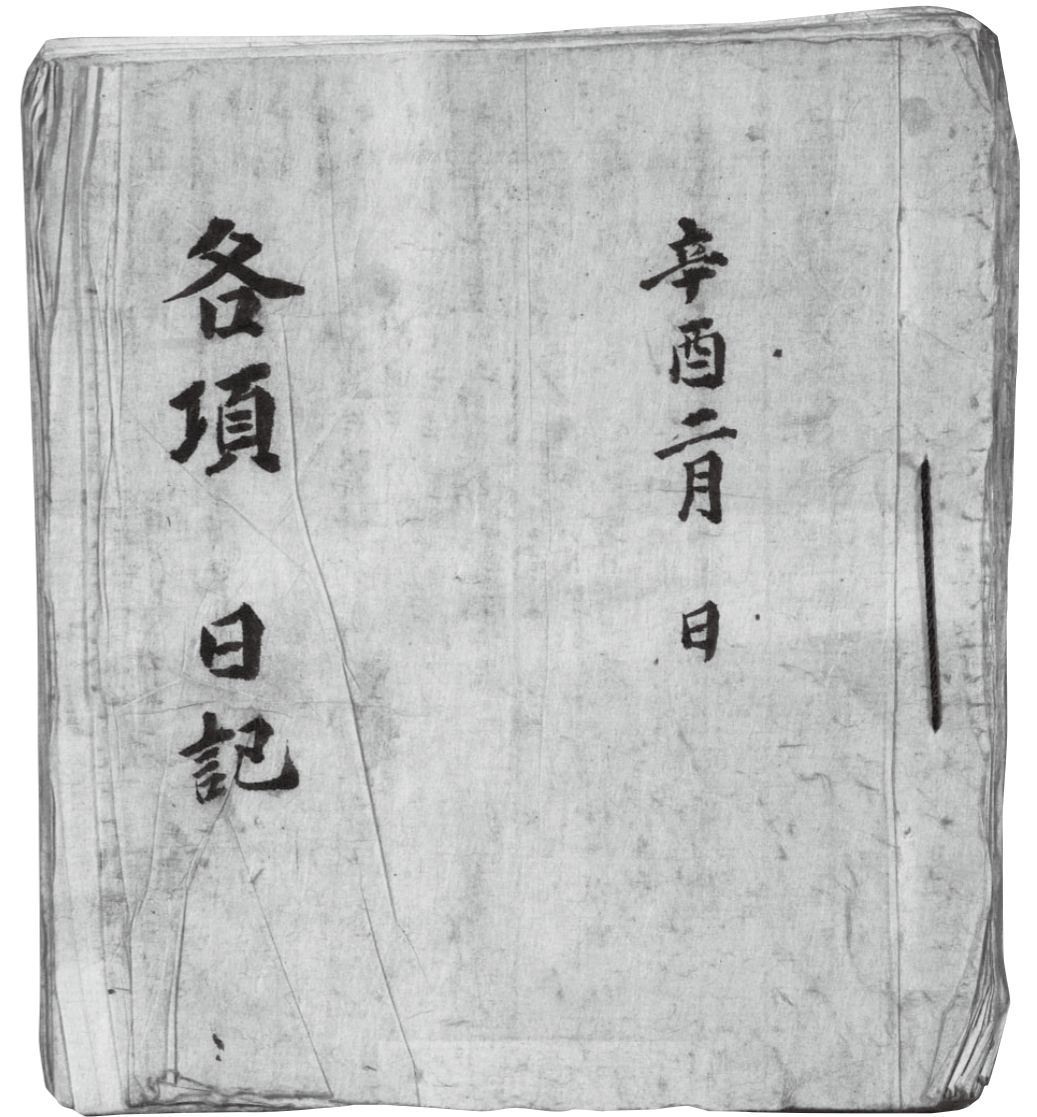 辛酉二月 日
各項 日記